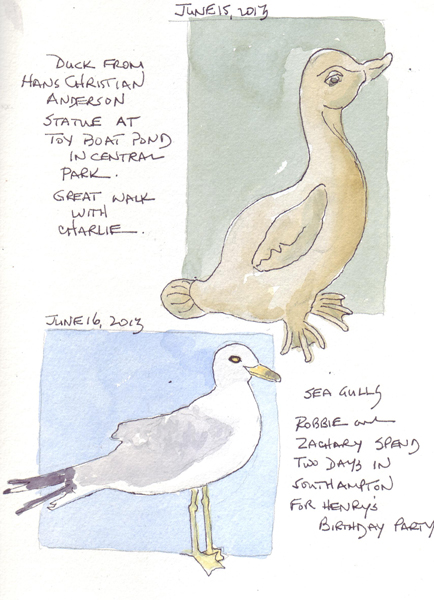 JUNE 15, 2013
DUCK FROM
HANS CHRISTIAN
ANDERSON
STATUE AT
TOY BOAT POND
IN CENTRAL
PARK.
GREAT WALK
WITH
CHARLIE.
JUNE 16, 2013
SEA GULLS
ROBBIE and
ZACHARY SPEND
TWO DAYS IN
SOUTHAMPTON
FOR HENRY'S
BIRTHDAY PARTY